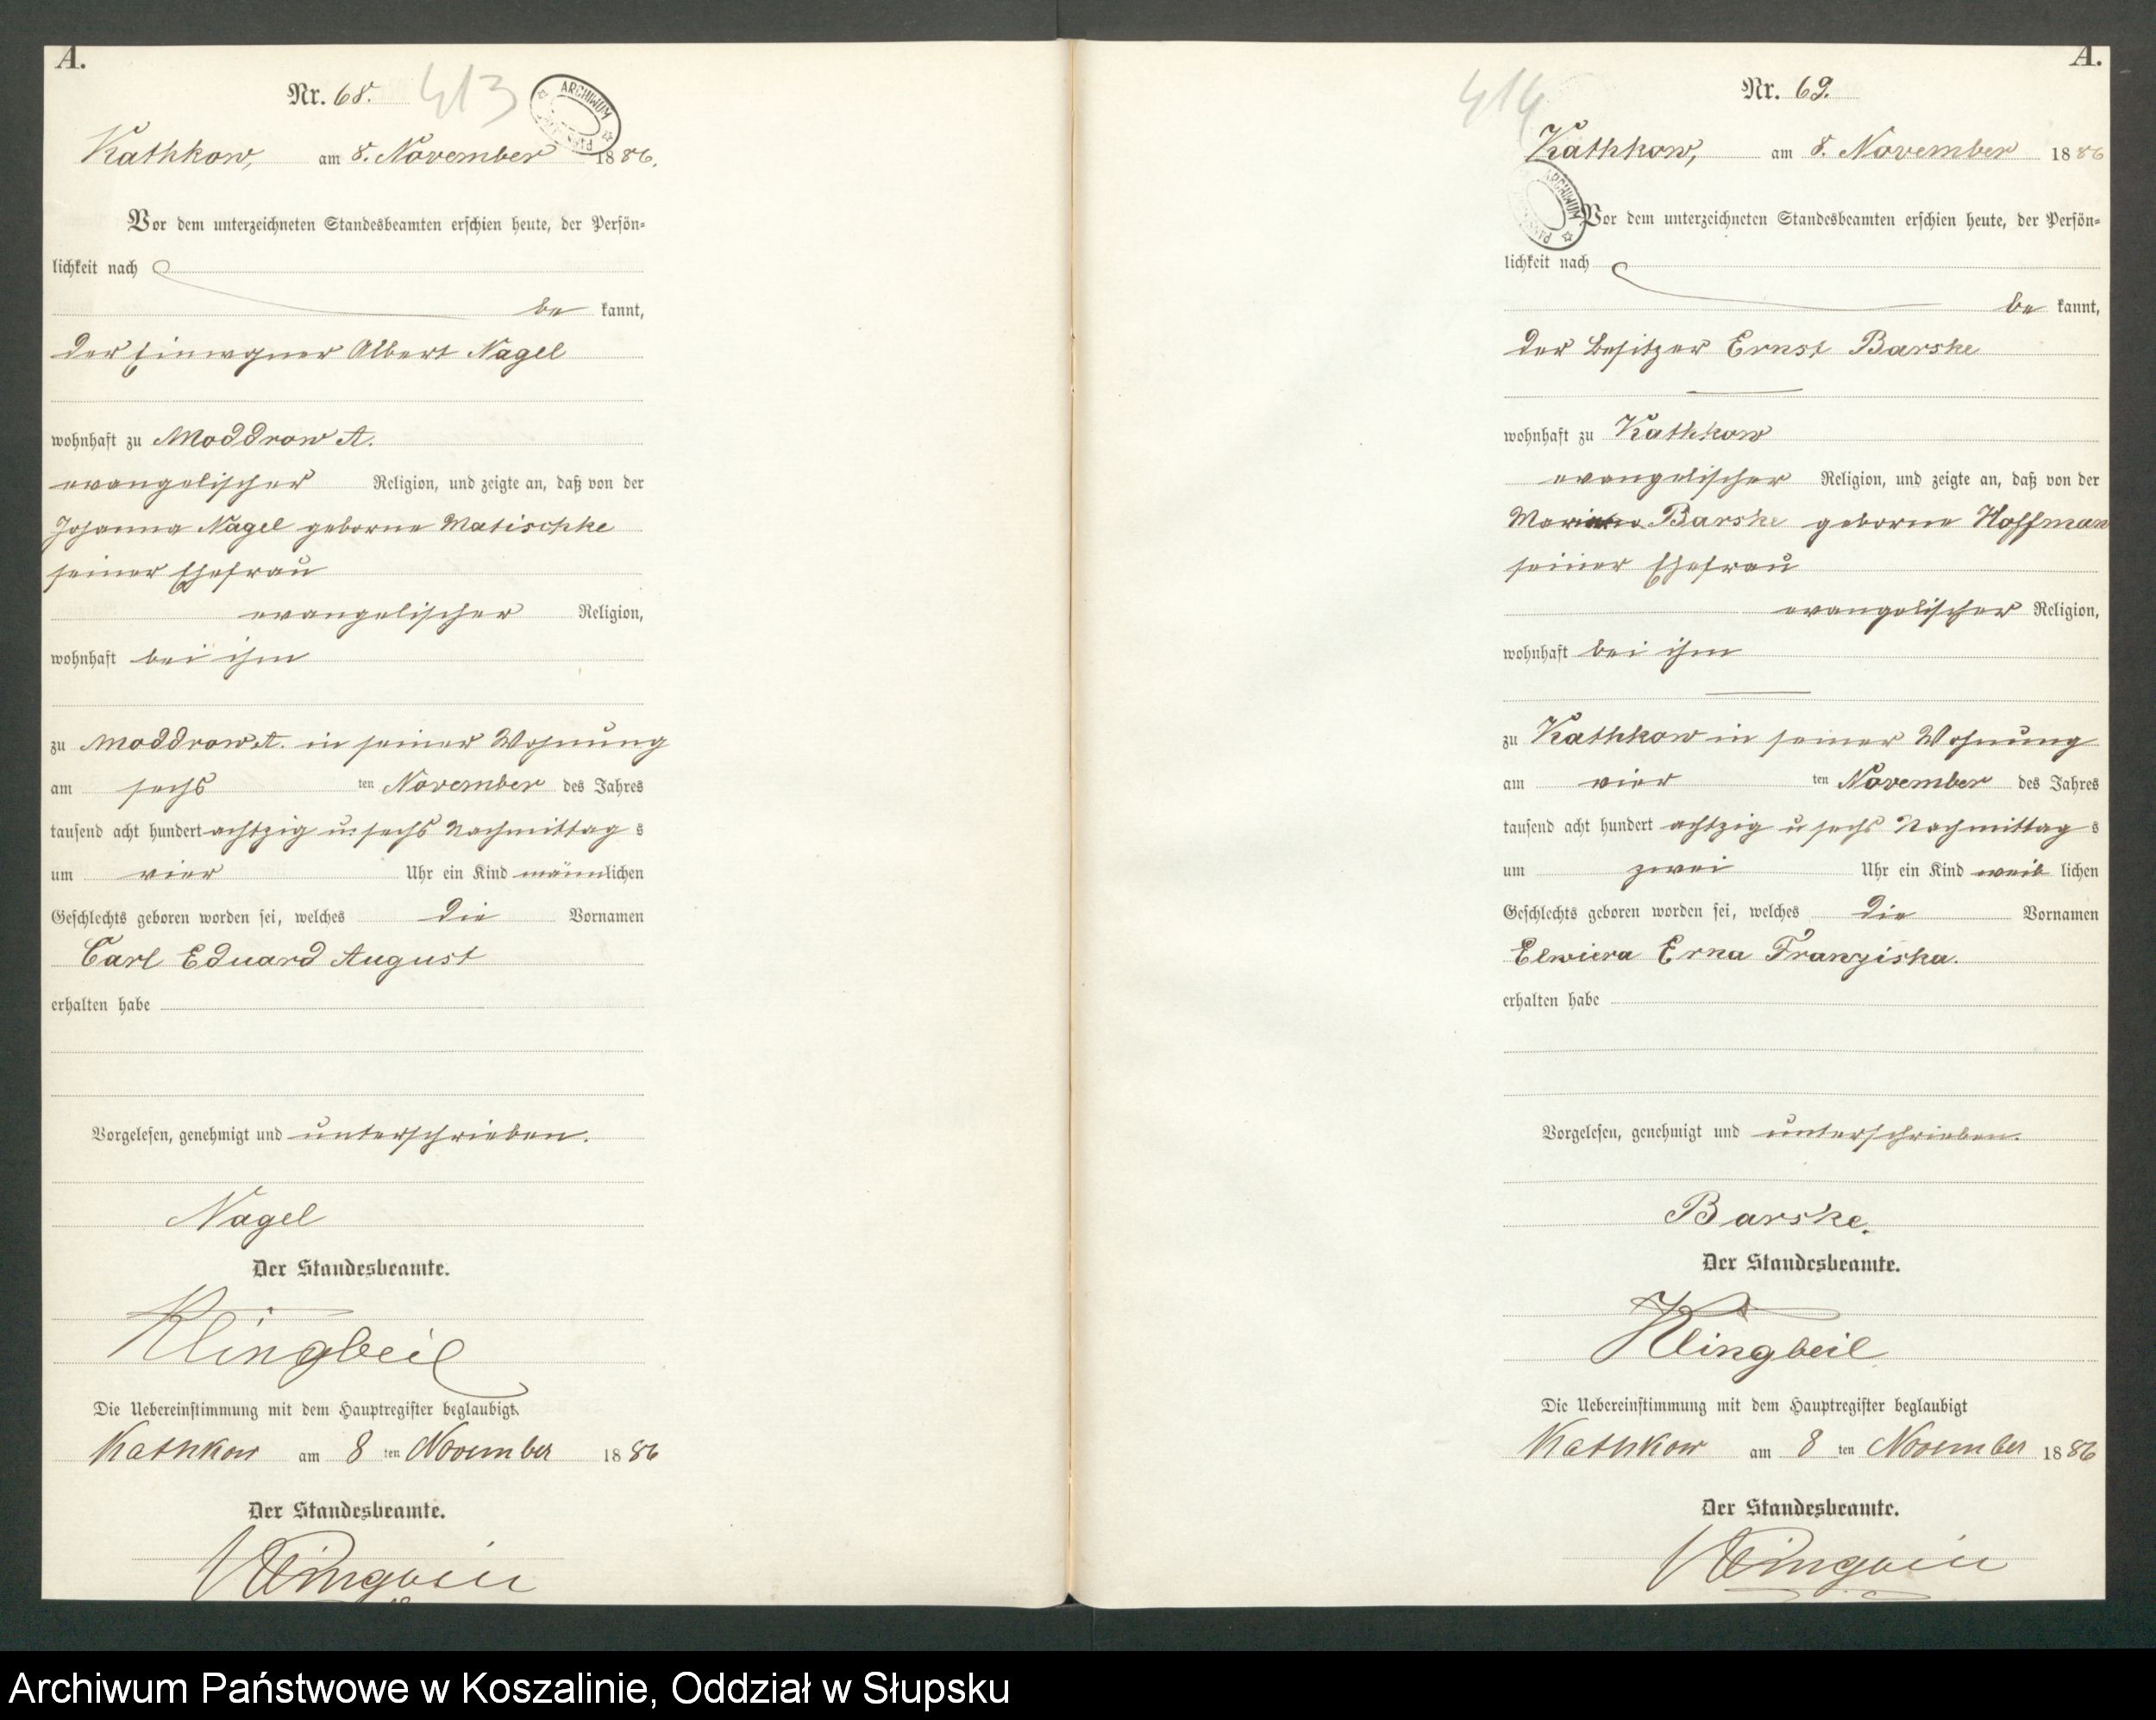 A.
Nr. 68.
413
ARCHIWUM
Kathkow, am 8. November 1886.
Vor dem unterzeichneten Standesbeamten erschien heute, der Persön-
lichkeit nach
be kannt,
der Einwohner Albert Nagel
wohnhaft zu Moddrow A.
evangelischer Religion, und zeigte an, daß von der
Johanna Nagel geborne Matischke
seiner Ehefrau
evangelischer Religion,
wohnhaft bei ihm
zu Moddrow A. in seiner Wohnung
am sechs ten November des Jahres
tausend acht hundert achtzig u. sechs Nachmittag s
um vier Uhr ein Kind männlichen
Geschlechts geboren worden sei, welches die Vornamen
Carl Eduard August
erhalten habe
Vorgelesen, genehmigt und unterschrieben.
Nagel
Der Standesbeamte.
Klingbeil
Die Uebereinstimmung mit dem Hauptregister beglaubigt
Kathkow am 8 ten November 1886
Der Standesbeamte.
Klingbeil
A.
Nr. 69.
414
Kathkow, am 8. November 1886
ARCHIWUM
Vor dem unterzeichneten Standesbeamten erschien heute, der Persön-
lichkeit nach
be kannt,
der Besitzer Ernst Barske
wohnhaft zu Kathkow
evangelischer Religion, und zeigte an, daß von der
Barske geborne Hoffman
seiner Ehefrau
evangelischer Religion,
wohnhaft bei ihm
zu Kathkow in seiner Wohnung
am vier ten November des Jahres
tausend acht hundert achtzig u sechs Nachmittag s
um zwei Uhr ein Kind weib lichen
Geschlechts geboren worden sei, welches die Vornamen
Elwiera Erna Franziska.
erhalten habe
Vorgelesen, genehmigt und unterschrieben.
Barske.
Der Standesbeamte.
Klingbeil
Die Uebereinstimmung mit dem Hauptregister beglaubigt
Kathkow am 8 ten November 1886
Der Standesbeamte.
Klingbeil
Archiwum Państwowe w Koszalinie, Oddział w Słupsku